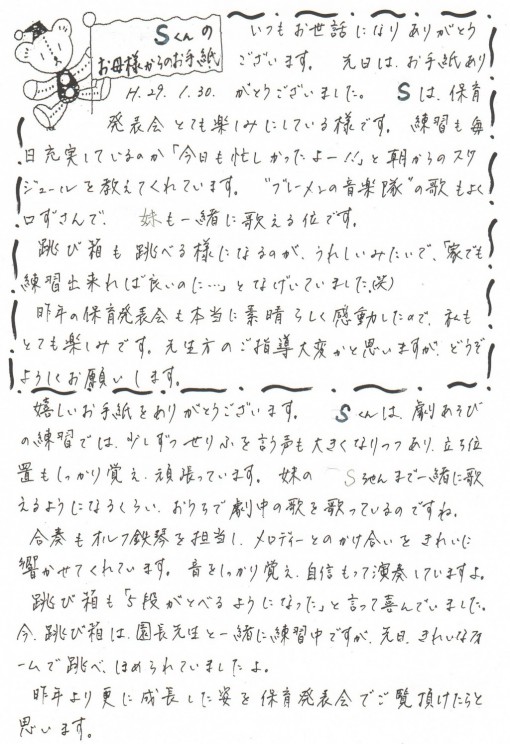 Sくんの
お母様からのお手紙
いつもお世話になりありがとう
ございます。 先日は、お手紙あり
H.29.1.30. がとうございました。 Sは、保育
発表会とても楽しみにしている様です。 練習も毎
日充実しているのか「今日も忙しかったよー!!」と朝からのスケ
ジュールを教えてくれています。 "ブレーメンの音楽隊"の歌もよく
口ずさんで、 妹も一緒に歌える位です。
跳び箱も跳べる様になるのが、うれしいみたいで、「家でも
練習出来れば良いのに…」となげいていました(笑)
昨年の保育発表会も本当に素晴らしく感動したので、私も
とても楽しみです。先生方のご指導大変かと思いますが、どうぞ
よろしくお願いします。
嬉しいお手紙をありがとうございます。 Sくんは、劇あそび
の練習では、少しずつせりふを言う声も大きくなりつつあり、立ち位
置もしっかり覚え、頑張っています。 妹の Sちゃんまで一緒に歌
えるようになるくらい、おうちで劇中の歌を歌っているのですね。
合奏もオルフ鉄琴を担当し、メロディーとのかけ合いをきれいに
響かせてくれています。 音をしっかり覚え、自信もって演奏していますよ。
跳び箱も「5段がとべるようになった」と言って喜んでいました。
今、跳び箱は、園長先生と一緒に練習中ですが、先日、きれいなフォ
ームで跳べ、ほめられていましたよ。
昨年より更に成長した姿を保育発表会でご覧頂けたらと
思います。